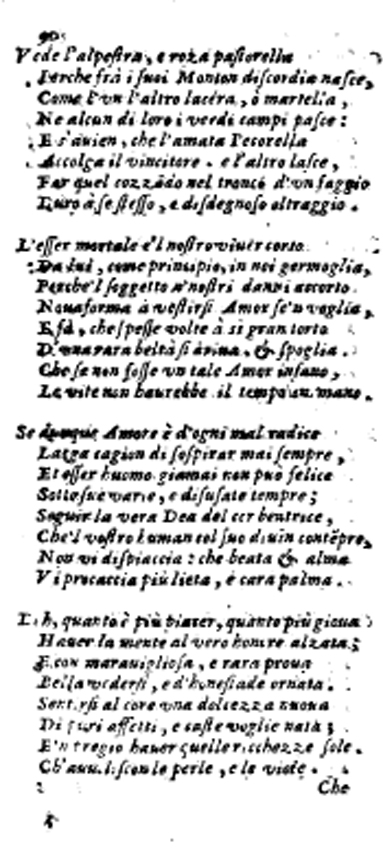 90
Vede l'alpestra, e roza pastorella
Perche frà i suoi Monton discordia nasce,
Come l'vn l'altro lacéra, ò martella,
Ne alcun di loro i verdi campi pasce:
E s'auien, che l'amata Pecorella
Accolga il vincitore. e l'altro lasce,
Far quel cozzãdo nel tronco d'vn faggio
Duro à se stesso, e disdegnoso oltraggio.
L'esser mortale e'l nostro viuer corto
Da lui, come principio, in noi germoglia,
Perche'l soggetto a'nostri danni accorto
Noua forma à vestirsi Amor se'n voglia,
E fà, che spesse volte à si gran torto
D'vna rara beltà si àrma. & spoglia.
Che se non fosse vn tale Amor insano,
Le vite non haurebbe il tempo in mano.
Se dunque Amore è d'ogni mal radice
Larga cagion di sospirar mai sempre,
Et esser huomo giamai non può felice
Sotto sue varie, e disusate tempre;
Seguir la vera Dea del cor beatrice,
Che'l vostro human col suo diuin contẽpre,
Non vi dispiaccia: che beata & alma
Vi procaccia più lieta, e cara palma.
Deh, quanto è più piacer, quanto più gioua
Hauer la mente al vero honore alzata;
E con marauigliosa, e rara proua
Bella vedersi, e d'honestade ornata.
Sentirsi al core vna dolcezza nuoua
Di puri affetti, e caste voglie nata;
E'n pregio hauer quelle ricchezze sole.
Ch'auuiliscon le perle, e le viole.
Che